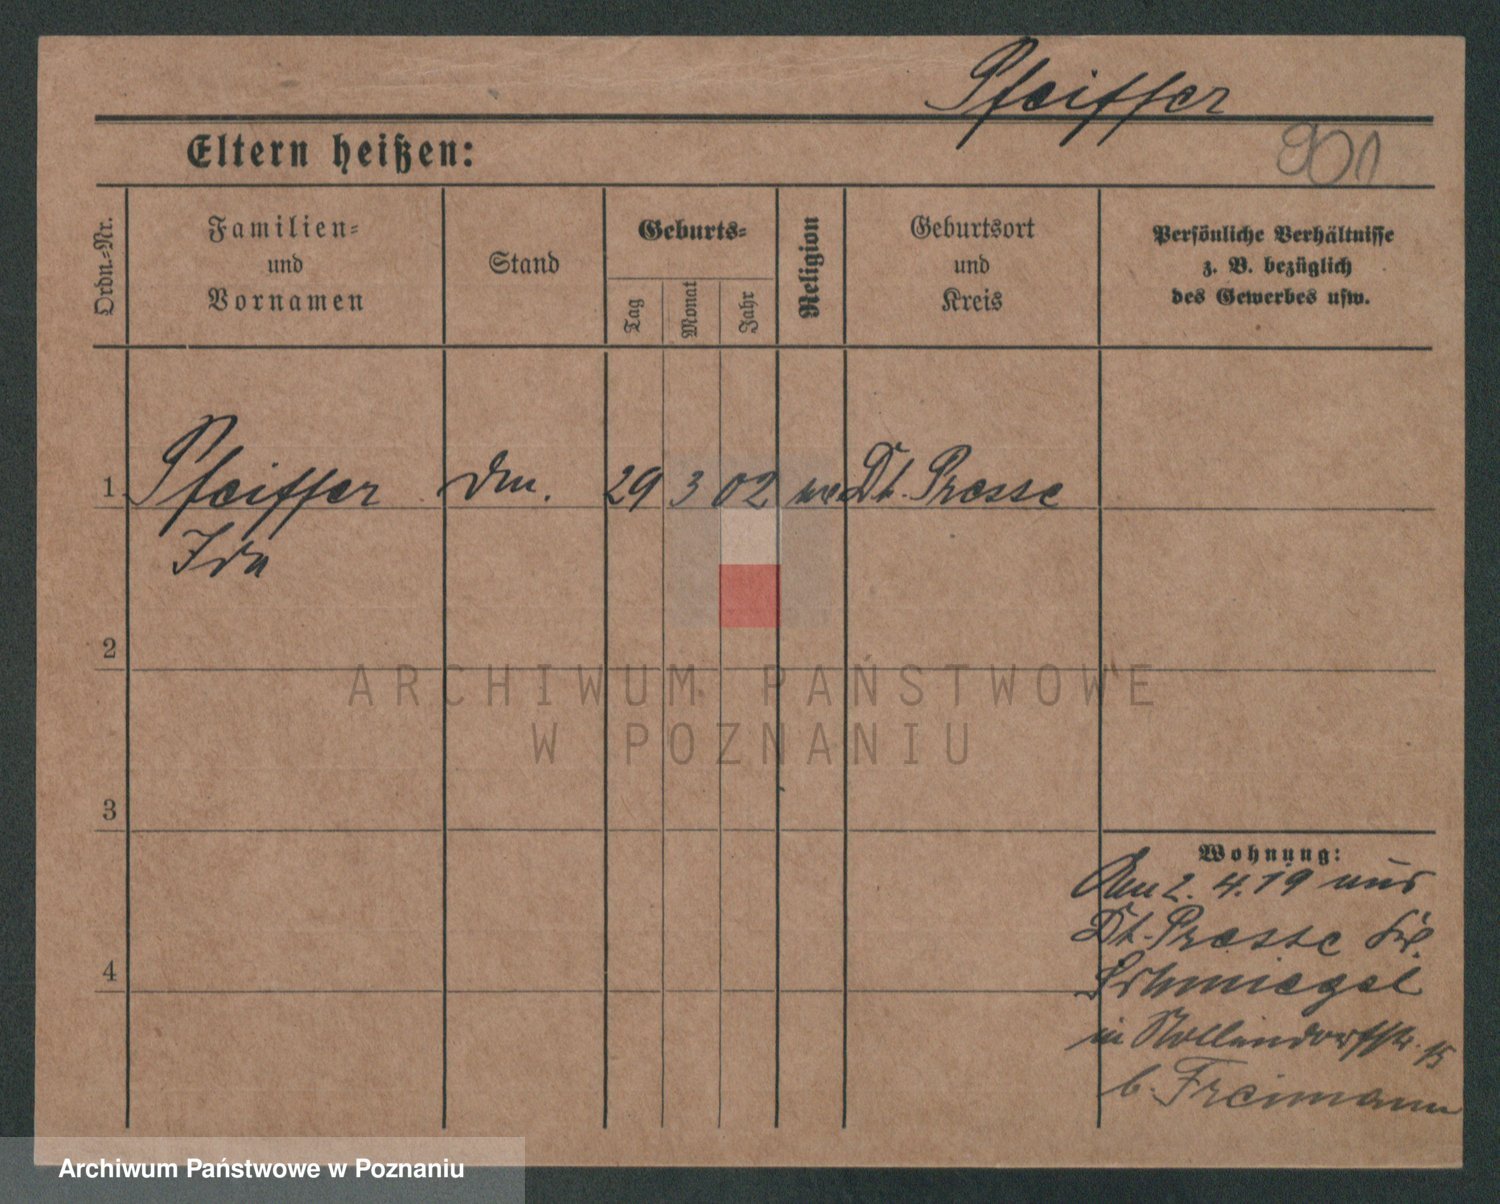 Pfeiffer
Eltern heißen:
901
Ordn.-Nr.
Familien-
und
Vornamen
Stand
Geburts-
Tag
Monat
Jahr
Religion
Geburtsort
und
Kreis
Persönliche Verhältnisse
z. B. bezüglich
des Gewerbes usw.
1 Pfeiffer 29 3 02 Dt. Presse
Ida
2
3
4
Wohnung:
2. 4. 19 aus
Dt. Presse Kr.
Schmiegel
in Nollendorfstr. 15
b. Freimann
ARCHIWUM PAŃSTWOWE
W POZNANIU
Archiwum Państwowe w Poznaniu